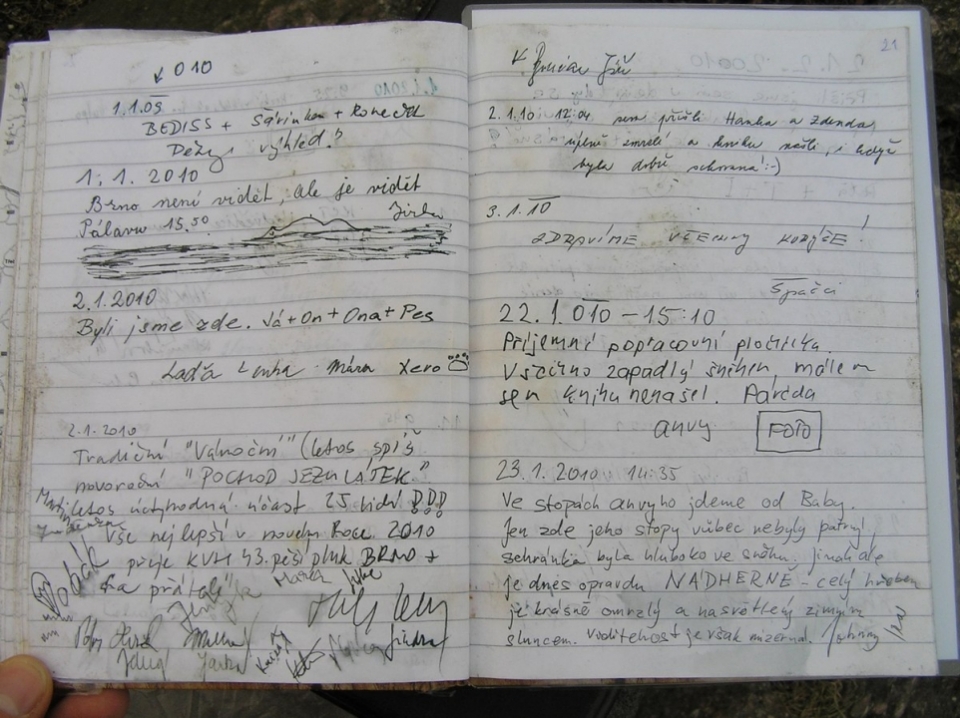 010
1.1.09
BEDISS + Sárinka +
výhled?
1. 1. 2010
Brno není vidět, ale je vidět
Pálavu 15.50 Jirka
2.1.2010
Byli jsme zde. Já + On + Ona + Pes
Laďa Lenka Mára Xero
2.1.2010
Tradiční "Vánoční" (letos spíš
novoroční "POCHOD JEZULÁTEK."
letos úctyhodná účast 25 lidí
Vše nejlepší v novém Roce 2010
přeje KVH 43. pěší pluk BRNO +
přátelé
Marek
21
Jiří
2.1.10 12,04 sem přišli Hanka a Zdenda,
úplně zmrzlí a knihu našli, i když
byla dobře schovaná! :-)
3.1.10
ZDRAVÍME VŠECHNY
Spáčci
22.1.010 - 15:10
Příjemní popracovní
Všecko zapadlý sněhem, málem
sem knihu nenašel. Paráda
anvy FOTO
23.1.2010 14:35
Ve stopách anvyho jdeme od Baby.
Jen zde jeho stopy vůbec nebyly patrný
schránka byla hluboko ve sněhu. Jinak ale
je dnes opravdu NÁDHERNĚ - celý hřeben
je krásně omrzlý a nasvětlený zimním
sluncem. Viditelnost je však mizerná.